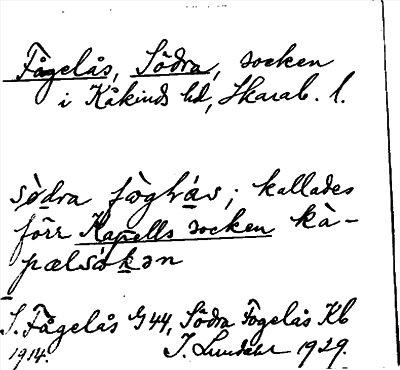 Fågelås, Södra, socken
i Kåkinds hd, Skarab. l.
södra fògḷås; kallades
förr Kapells socken kà-
pælsòkən
S. Fågelås G 44, Södra Fogelås Kb
1914. I. Lundahl 1929.